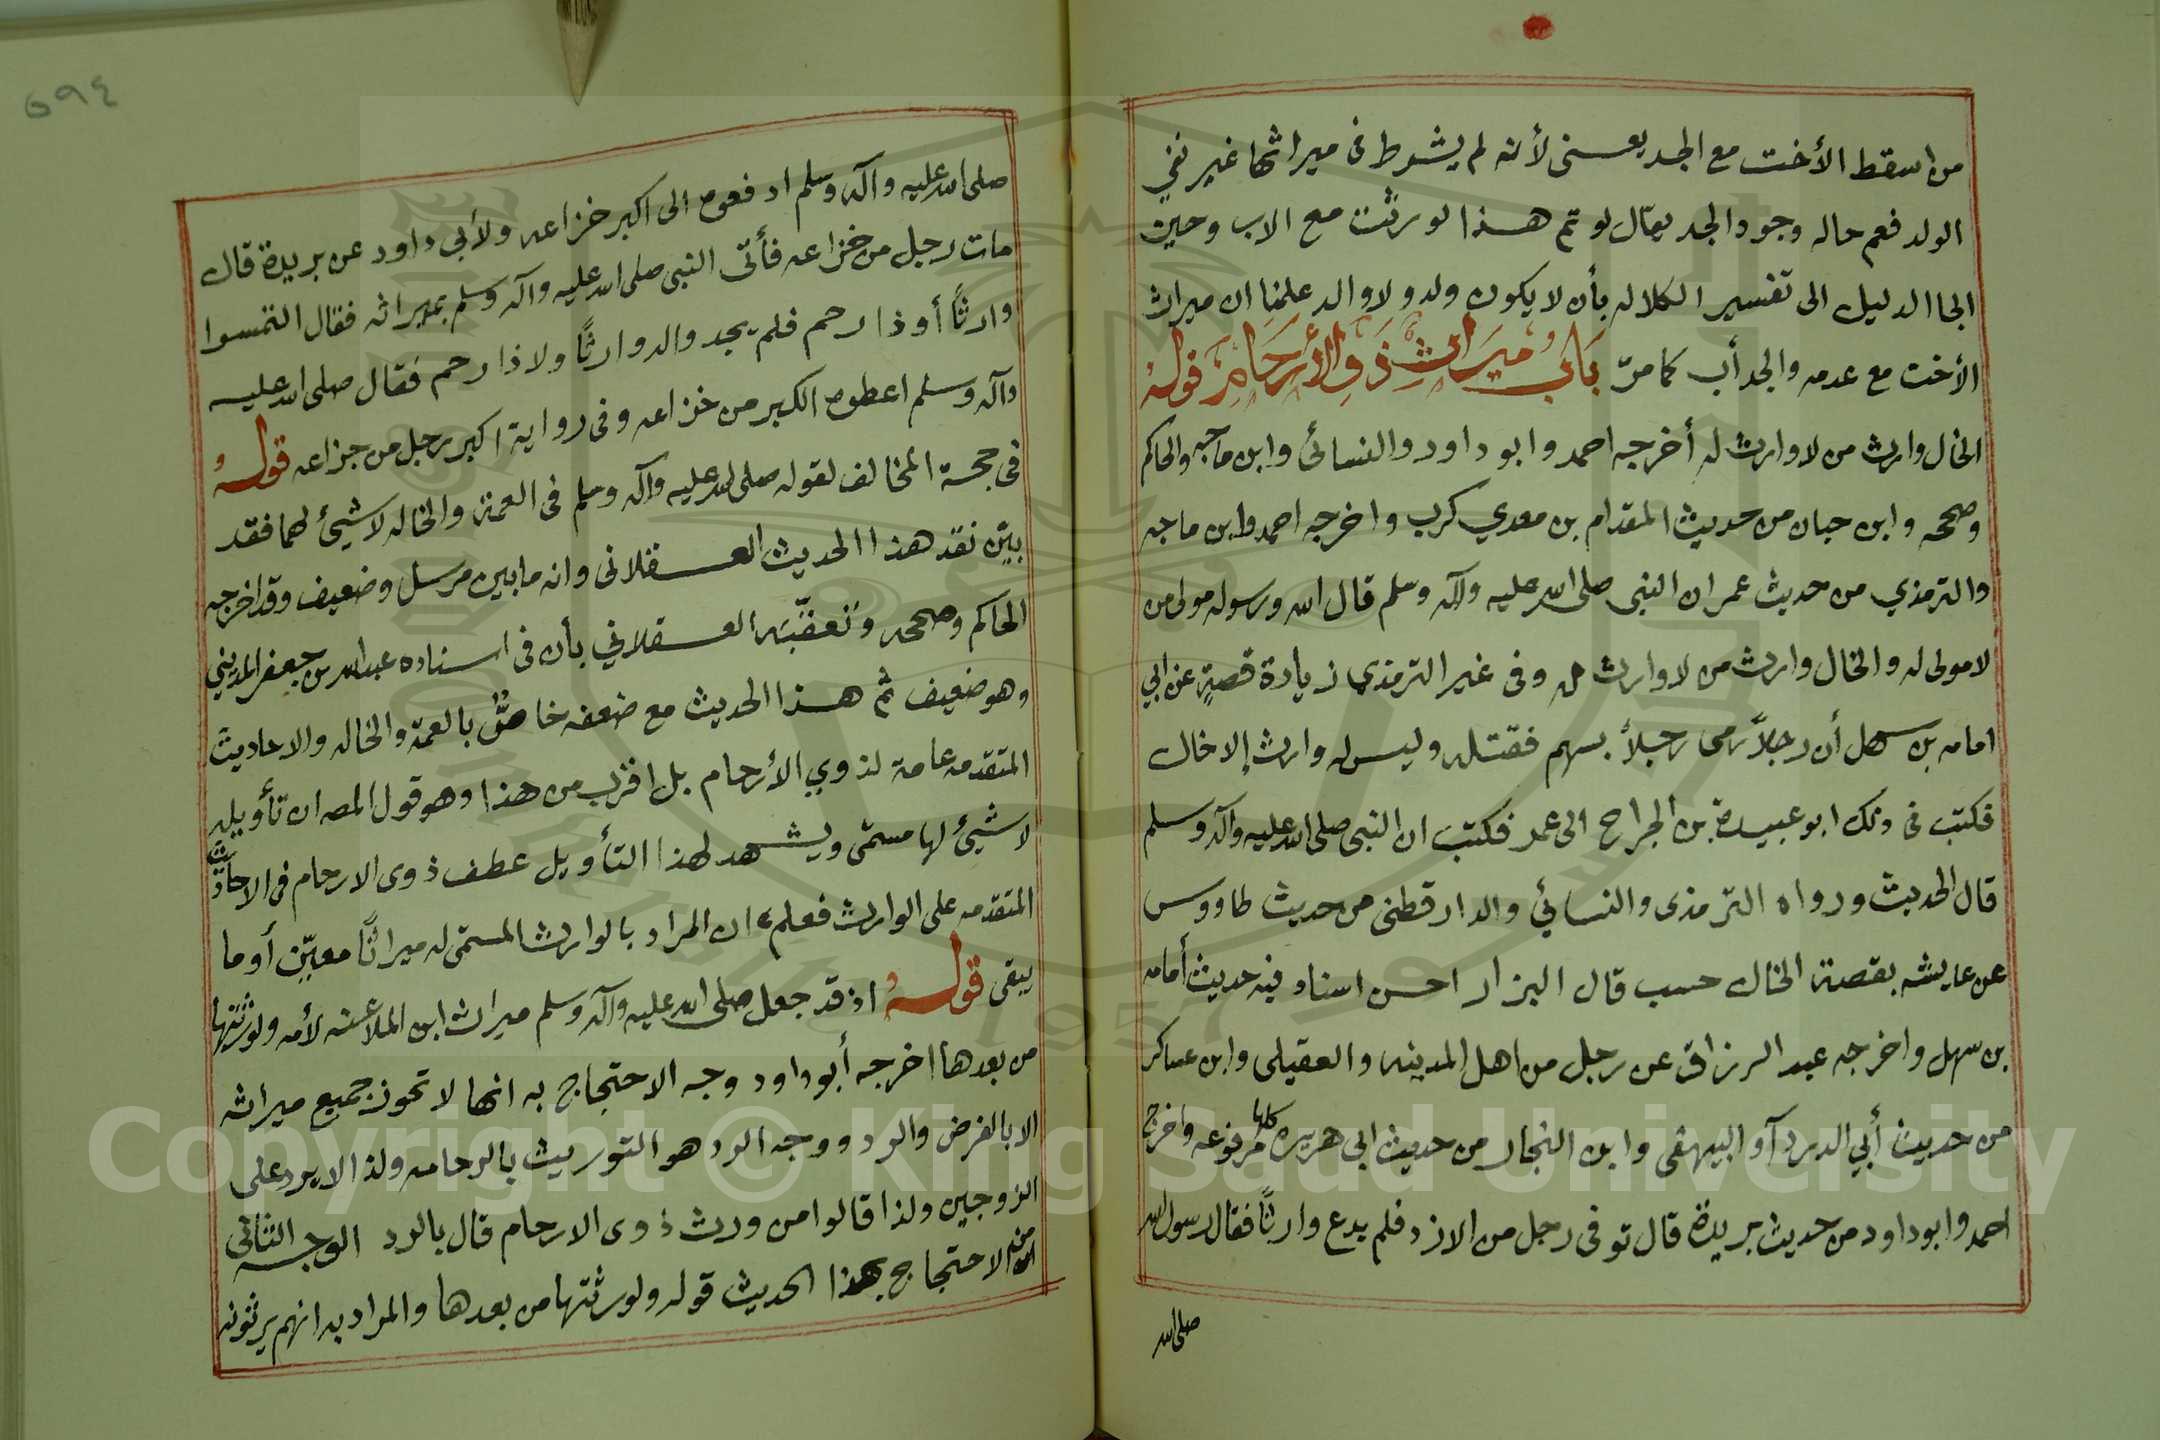 من اسقط الأخت مع الجد يعنى لأنه لم يشرط فى ميراثها غير نفي
الولد فعم حاله وجود الجد يقال لو تم هذا لورثت مع الاب وحين
الجا الدليل الى تفسير الكلاله بأن لا يكون ولد ولا والد علمنا ان ميراث
الأخت مع عدمه والجد أب كما مرّ بَابُ مِيرَاثِ ذَوِي الأَرحَامِ قوله
الخال وارث من لا وارث له أخرجه احمد وابو داود والنسائى وابن ماجه والحاكم
وصححه وابن حبان من حديث المقدام بن معدي كرب واخرجه احمد وابن ماجه
والترمذي من حديث عمر ان النبى صلى الله عليه وآله وسلم قال الله ورسوله مولى من
لا مولى له والخال وارث من لا وارث له وفى غير الترمذى زيادة قصةٍ عن ابي
امامه بن سهل أن رجلاً رمى رجلاً بسهم فقتله وليس له وارث إلا خال
فكتب فى ذلك ابو عبيدة بن الجراح الى عمر فكتب ان النبى صلى الله عليه وآله وسلم
قال الحديث ورواه الترمذى والنسائي والدارقطنى من حديث طاووس
عن عايشه بقصة الخال حسب قال البزار احسن اسناد فيه حديث أمامه
بن سهل واخرجه عبد الرزاق عن رجل من اهل المدينه والعقيلى وابن عساكر
من حديث أبي الدردآ والبيهقى وابن النجار من حديث ابى هريره كلها مرفوعه واخرج
احمد وابو داود من حديث بريدة قال توفى رجل من الازد فلم يدع وارثًا فقال رسول الله
صلى الله
٥٩٤
صلى الله عليه وآله وسلم ادفعوه الى اكبر خزاعه ولأبي داود عن بريدة قال
مات رجل من خزاعه فأتى النبى صلى الله عليه وآله وسلم بميراثه فقال التمسوا
وارثًا أو ذا رحم فلم يجدوا له وارثًا ولا ذا رحم فقال صلى الله عليه
وآله وسلم اعطوه الكبر من خزاعه وفى رواية اكبر رجل من خزاعه قوله
فى حجة المخالف لقوله صلى الله عليه وآله وسلم فى العمة والخاله لا شيئ لهما فقد
بيّن نقد هذا الحديث العسقلانى وانه ما بين مرسل وضعيف وقد اخرجه
الحاكم وصححه وتعقّبه العسقلاني بأن فى اسناده عبد الله بن جعفر المديني
وهو ضعيف ثم هذا الحديث مع ضعفه خاصٌّ بالعمة والخاله والاحاديث
المتقدمه عامة لذوي الأرحام بل اقرب من هذا وهو قول المصه ان تأويله
لا شيئ لها مسمّى ويشهد لهذا التأويل عطف ذوى الارحام فى الاحاديث
المتقدمه على الوارث فعلم ان المراد بالوارث المسمّى له ميراثًا معيّن أو ما
يبقى قوله اذ قد جعل صلى الله عليه وآله وسلم ميراث ابن الملاعنه لأمه ولورثتها
من بعدها اخرجه أبو داود وجه الاحتجاج به انها لا تحوز جميع ميراثه
الا بالفرض والرد ووجه الرد هو التوريث بالرحامه ولذا لا يرد على
الزوجين ولذا قالوا من ورث ذوى الارحام قال بالرد الوجه الثانى
من الاحتجاج بهذا الحديث قوله ولورثتها من بعدها والمراد به انهم يرثونه
Copyright © King Saud University
1957